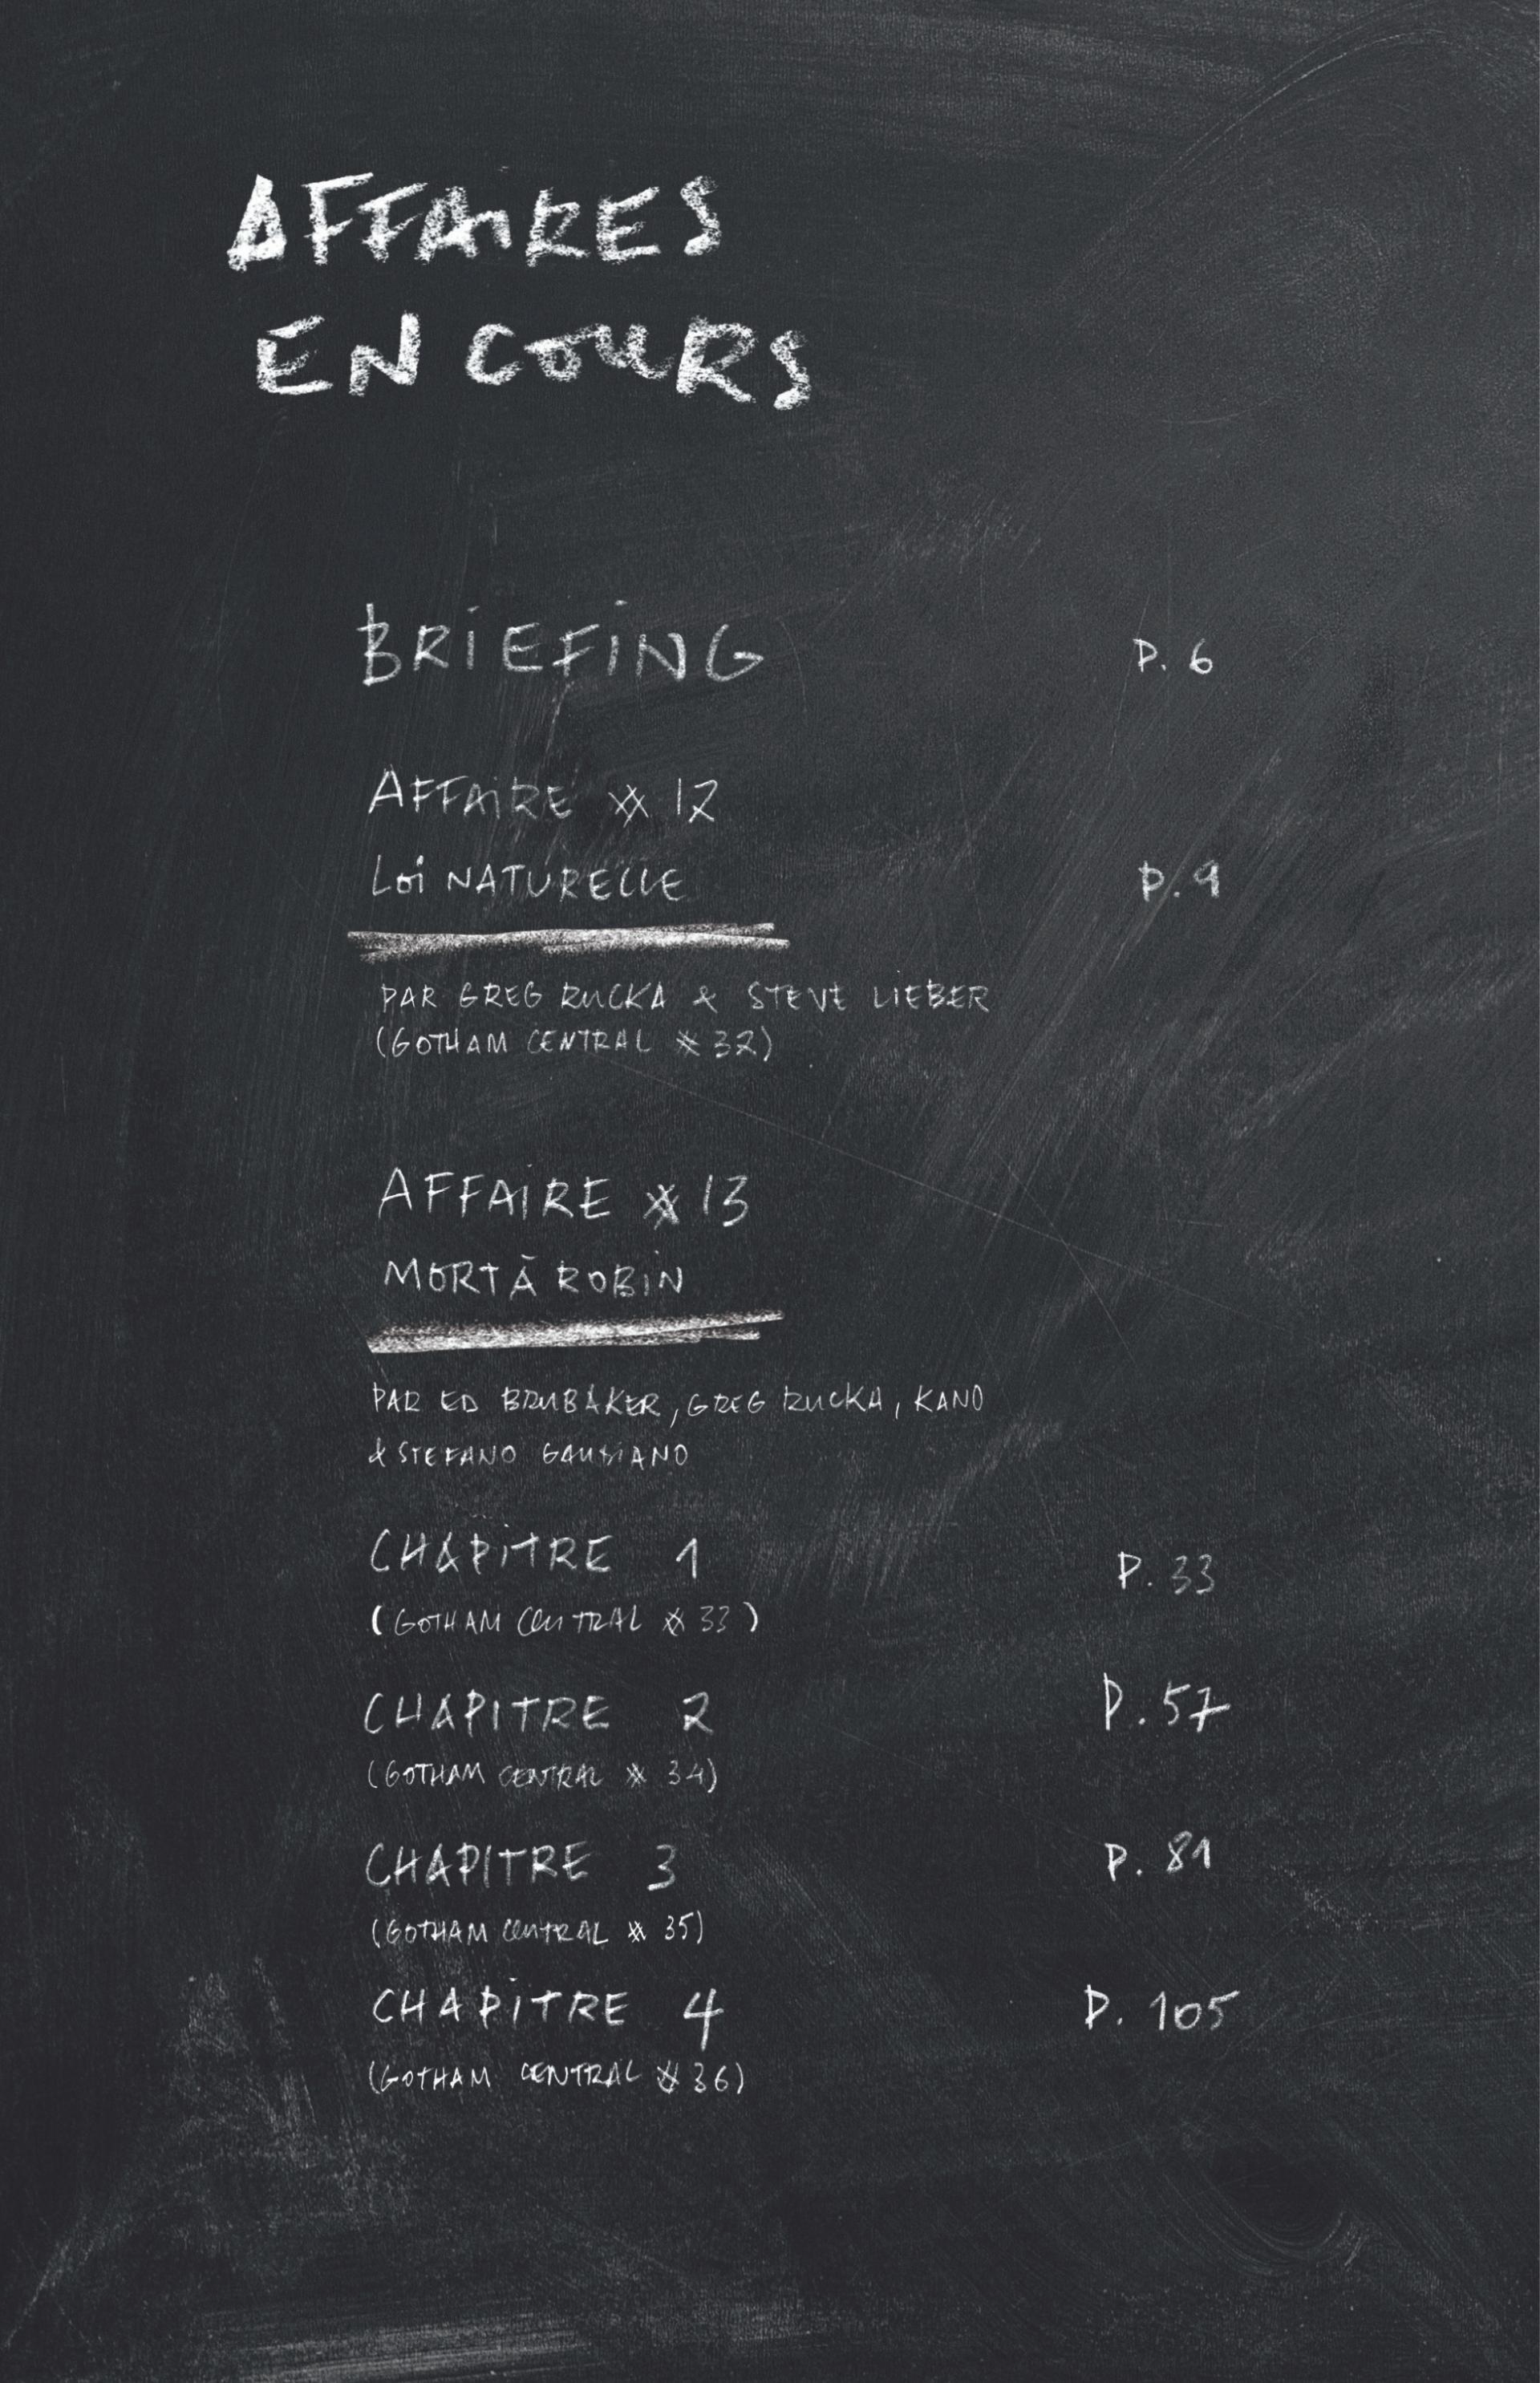 AFFAIRES
EN COURS
BRIEFING P. 6
AFFAIRE # 12
LOI NATURELLE P. 9
PAR GREG RUCKA & STEVE LIEBER
(GOTHAM CENTRAL # 32)
AFFAIRE # 13
MORT À ROBIN
PAR ED BRUBAKER, GREG RUCKA, KANO
& STEFANO GAUDIANO
CHAPITRE 1 P. 33
(GOTHAM CENTRAL # 33)
CHAPITRE 2 P. 57
(GOTHAM CENTRAL # 34)
CHAPITRE 3 P. 81
(GOTHAM CENTRAL # 35)
CHAPITRE 4 P. 105
(GOTHAM CENTRAL # 36)